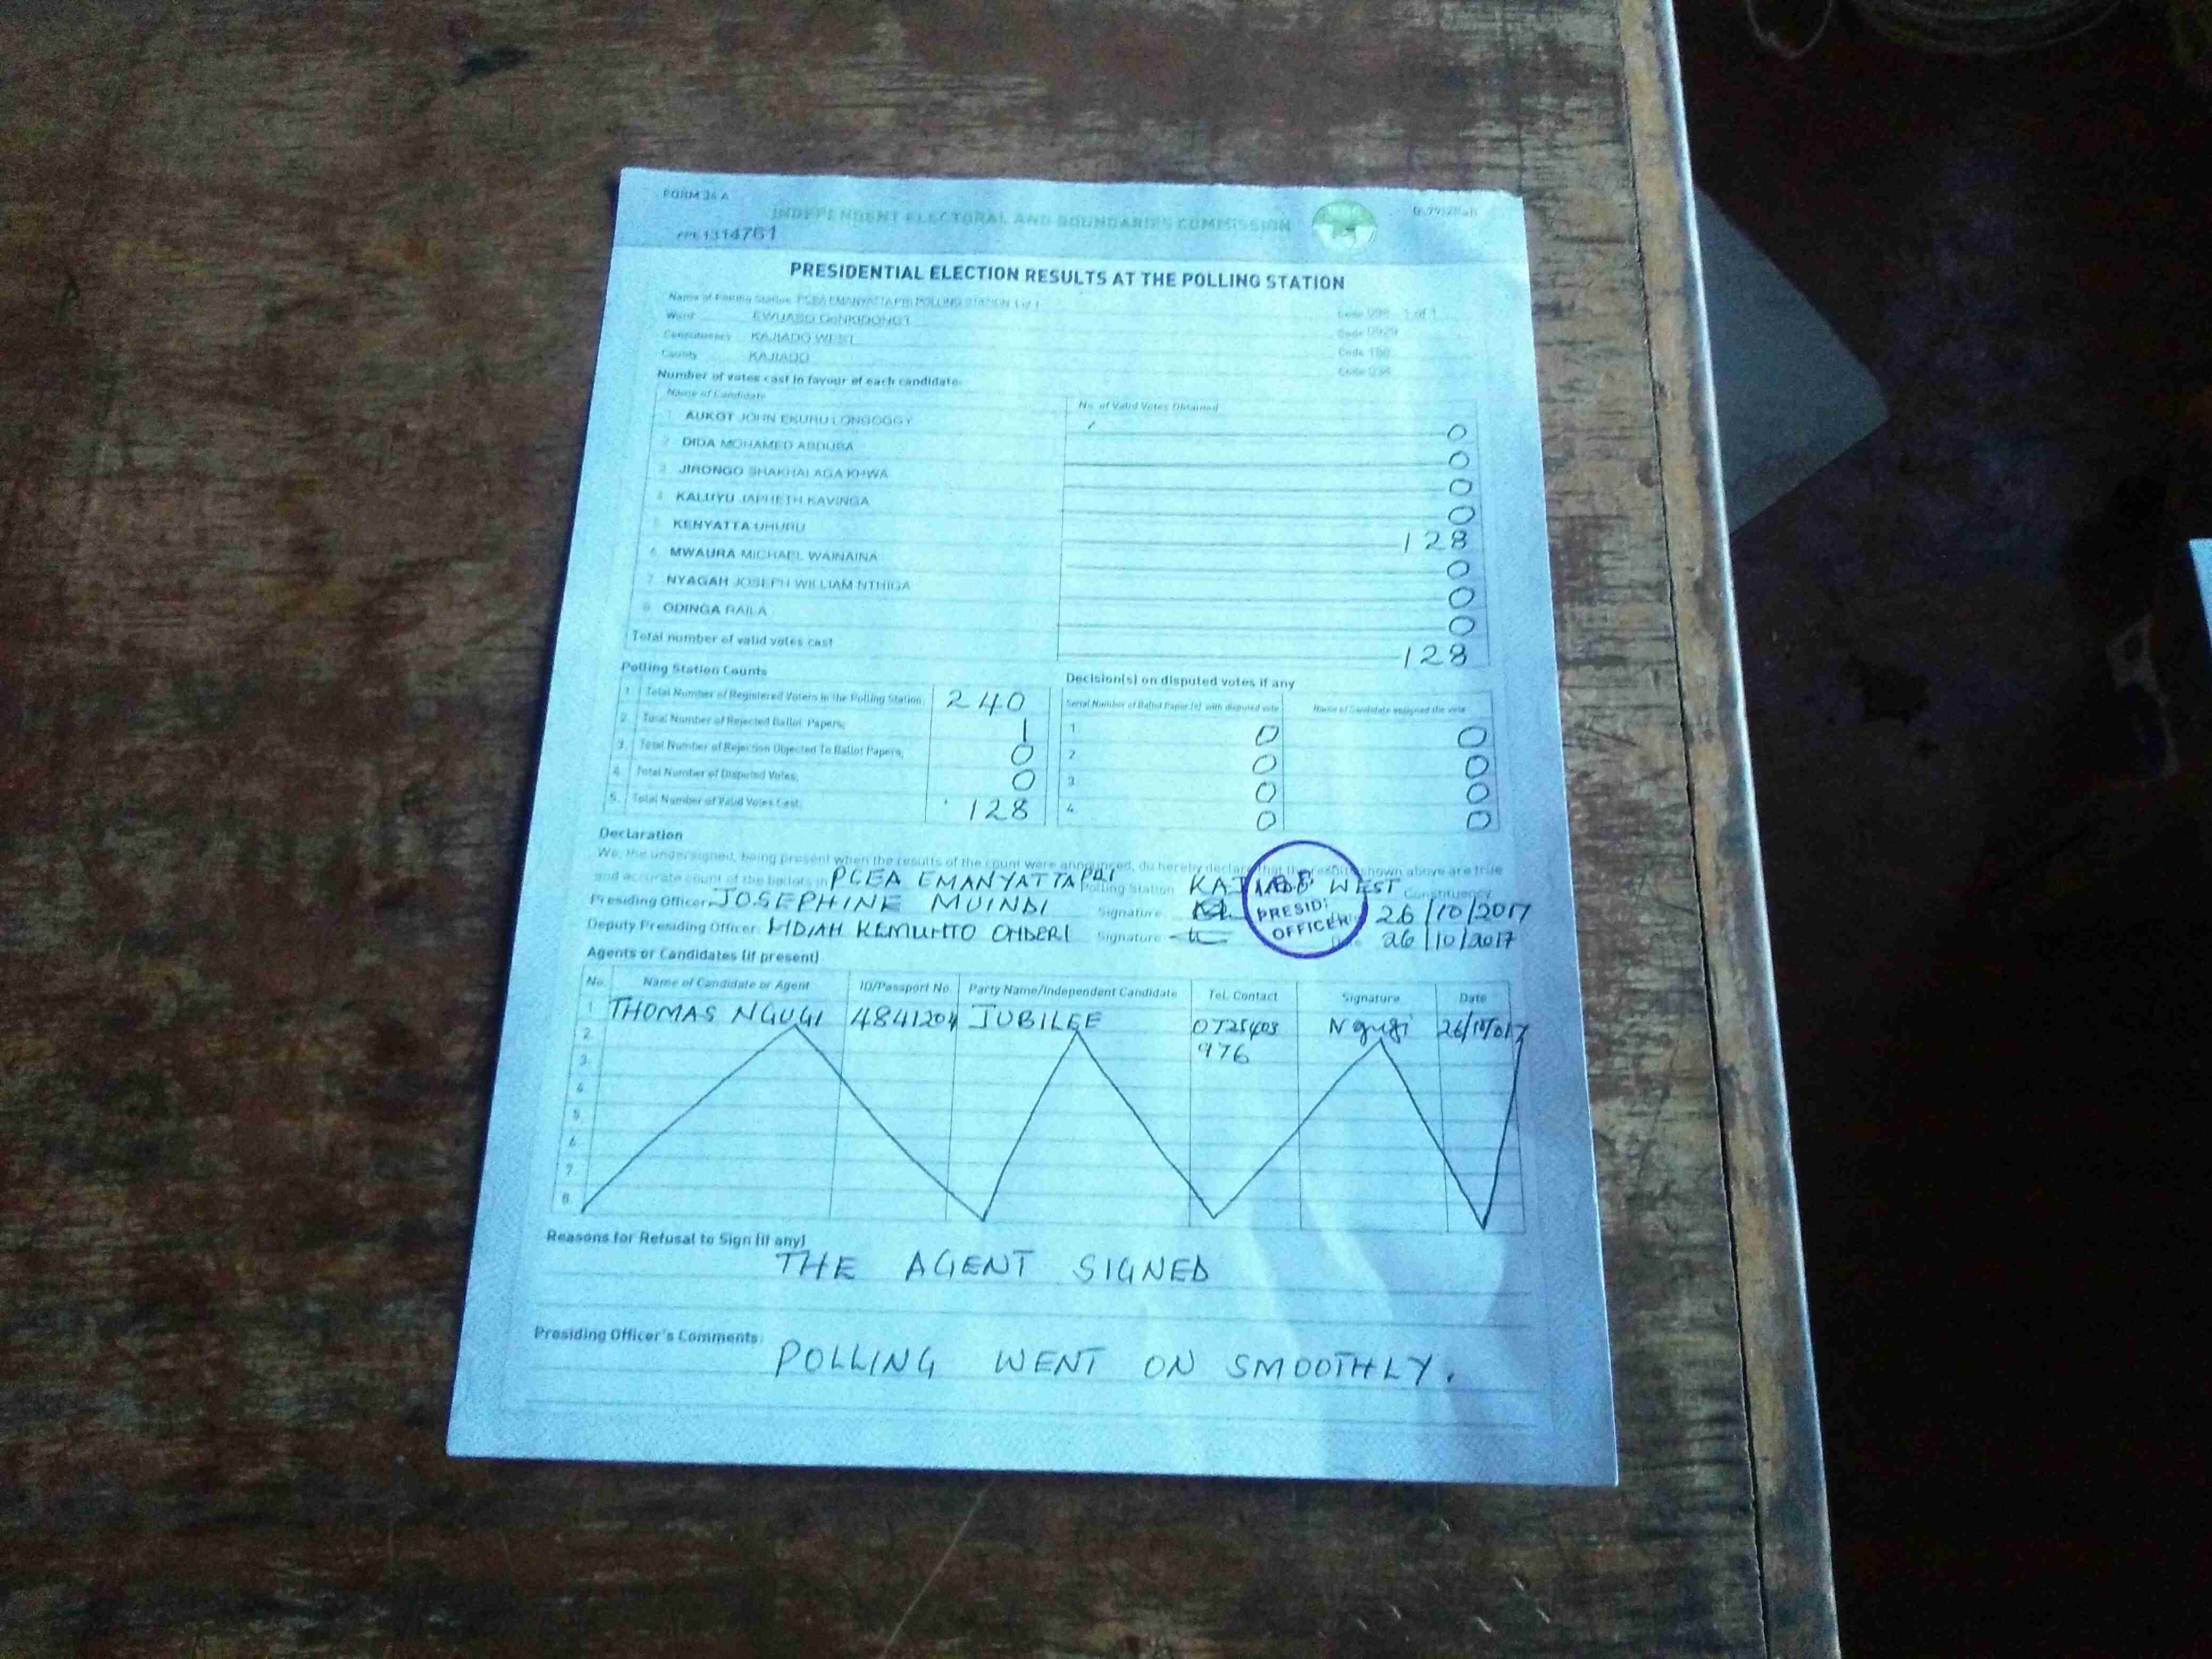 FORM 34 A
INDEPENDENT ELECTORAL AND BOUNDARIES COMMISSION
1314761
PRESIDENTIAL ELECTION RESULTS AT THE POLLING STATION
Name of Polling Station PCEA EMANYATTA PRI POLLING STATION 1 of 1
Ward EWUASO Code 1 of 1
Constituency KAJIADO WEST Code 0929
County KAJIADO Code
Code
Number of votes cast in favour of each candidate:
Name of Candidate No. of Valid Votes Obtained
1. AUKOT JOHN EKURU LONGOGGY 0
2. DIDA MOHAMED ABDUBA 0
3. JIRONGO SHAKHALAGA KHWA 0
4. KALUYU JAPHETH KAVINGA 0
5. KENYATTA UHURU 128
6. MWAURA MICHAEL WAINAINA 0
7. NYAGAH JOSEPH WILLIAM NTHIGA 0
8. ODINGA RAILA 0
Total number of valid votes cast 128
Polling Station Counts
1. Total Number of Registered Voters in the Polling Station; 240
2. Total Number of Rejected Ballot Papers; 1
3. Total Number of Rejection Objected To Ballot Papers; 0
4. Total Number of Disputed Votes; 0
5. Total Number of Valid Votes Cast; 128
Decision(s) on disputed votes if any
Serial Number of Ballot Paper (s) with disputed vote Name of Candidate assigned the vote
1 0 0
2 0 0
3 0 0
4 0 0
Declaration
We, the undersigned, being present when the results of the count were announced, do hereby declare that the results shown above are true
and accurate count of the ballots in PCEA EMANYATTA PRI Polling Station KAJIADO WEST Constituency
Presiding Officer JOSEPHINE MUINDI Signature 26/10/2017
Deputy Presiding Officer KEMUNTO Signature Date 26/10/2017
PRESIDI
OFFICER
Agents or Candidates (if present)
No. Name of Candidate or Agent ID/Passport No. Party Name/Independent Candidate Tel. Contact Signature Date
1 THOMAS NGUGI 4841204 JUBILEE 0725403 Ngugi
976
2.
3.
4.
5.
6.
7.
8.
Reasons for Refusal to Sign (if any)
THE AGENT SIGNED
Presiding Officer's Comments:
POLLING WENT ON SMOOTHLY.